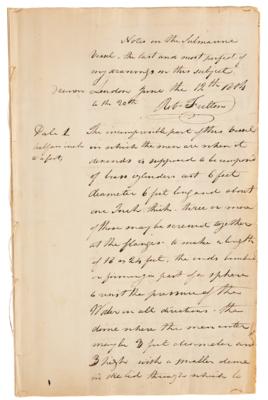 Notes on the Submarine
Vessel. the last and most perfect of
my drawings on this subject
London June the 12th 1806
to the 20th Robt Fulton
Plate 1 The impregnable part of this Vessel
half an inch in which the men are when it
a foot descends is supposed to be composed
of brass cylinders cast 6 feet
diameter 6 feet long and about
one Inch thick. three or more
of these may be screwed together
at the flanges to make a length
of 18 or 24 feet. the ends
or forming a part of a sphere
to resist the pressure of the
Water in all directions. the
dome where the men enter
may be 3 feet diameter and
3 high with a smaller dome
through which to